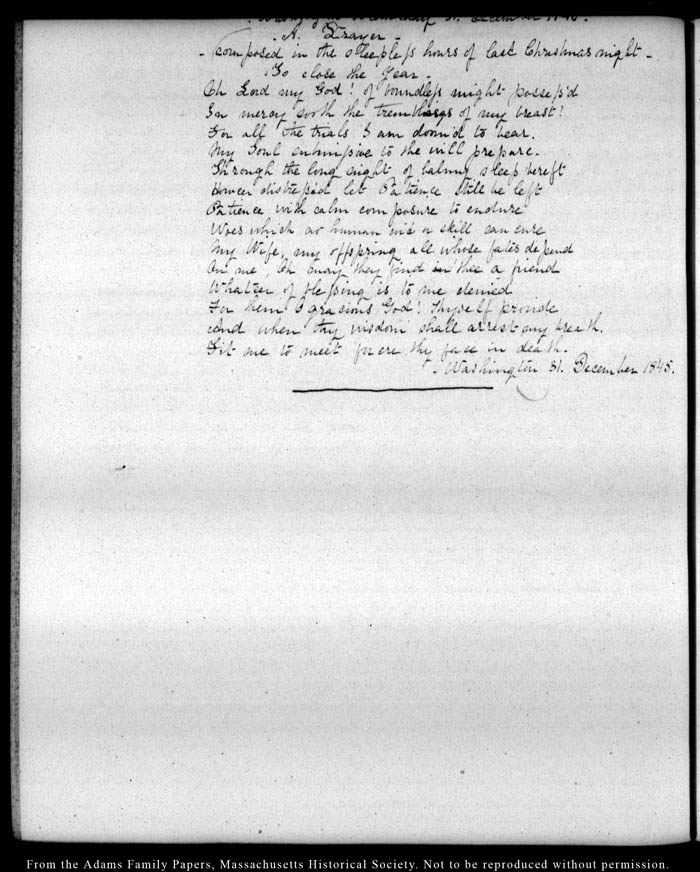 Washington Wednesday 31. December 1845.
A. Prayer -
- Composed in the sleepless hours of last Christmas night -
To close the Year.
Oh Lord my God! of boundless might possess'd
In mercy sooth the tremblings of my breast!
For all the trials I am doom'd to bear.
My Soul submissive to the will prepare.
Through the long night of balmy sleep bereft
However distress'd let Patience still be left
Patience with calm composure to endure
Woes which no human or skill can cure
My Wife, my offspring, all whose fates depend
On me, Oh may they find in thee a friend
Whate'er of blessing is to me denied
For them O gracious God! Thyself provide
And when thy wisdom shall arrest my breath.
Fit me to meet thy face in death.
- Washington 31. December 1845.
From the Adams Family Papers, Massachusetts Historical Society. Not to be reproduced without permission.